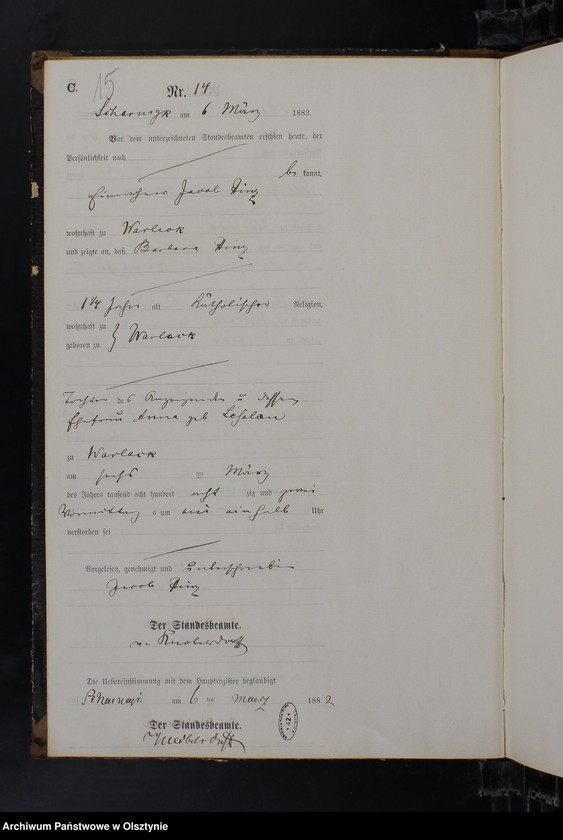 C.
15
Nr. 14
Scharnigk am 6 März 1882.
Vor dem unterzeichneten Standesbeamten erschien heute, der
Persönlichkeit nach
be kannt,
Einwohner Jacob
wohnhaft zu Warlack
und zeigte an, daß Barbara
1 1/4 Jahr alt katholischer Religion,
wohnhaft zu
geboren zu } Warlack
Tochter des Anzeigenden u dessen
Ehefrau Anna geb
zu Warlack
am sechs ten März
des Jahres tausend acht hundert acht zig und zwei
Vormittag s um ein halb Uhr
verstorben sei
Vorgelesen, genehmigt und unterschrieben
Jacob
Der Standesbeamte.
v. Knobelsdorff
Die Uebereinstimmung mit dem Hauptregister beglaubigt
Scharnigk am 6 ten Maerz 1882
Der Standesbeamte.
Knobelsdorff
42
Archiwum Państwowe w Olsztynie